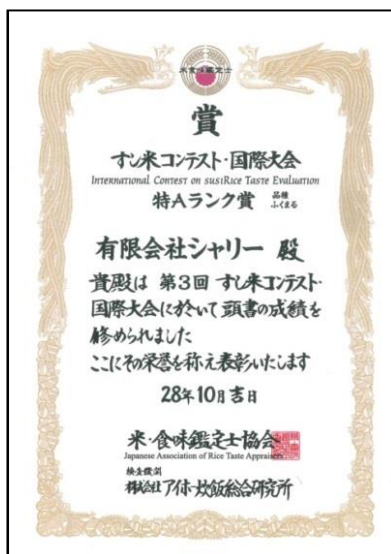 米・食味鑑定士
賞
すし米コンテスト・国際大会
International Contest on susiRice Taste Evaluation
特Aランク賞 品種 ふくまる
有限会社シャリー 殿
貴殿は 第3回 すし米コンテスト・
国際大会に於いて 頭書の成績を
修められました
ここにその栄誉を称え表彰いたします
28年10月吉日
米・食味鑑定士協会
Japanese Association of Rice Taste Appraisers
検査機関
株式会社アイホー炊飯総合研究所